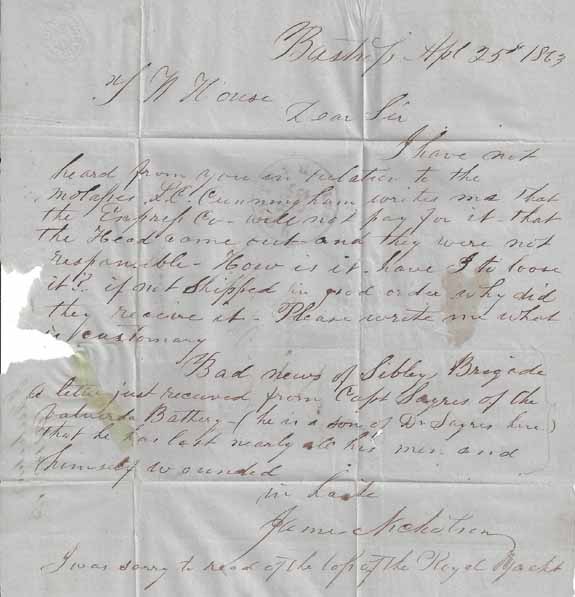 Bastrop Apl 25th 1863
T W House
Dear Sir
I have not
heard from you in relation to the
molasses. Cunningham writes me that
the Express Co. will not pay for it - that
the Head came out and they were not
responsible - How is it have I to loose
it? if not Shipped in good order why did
they receive it - Please write me what
is customary
Bad news of Sibley Brigade
a letter just received from Capt Sayres of the
Valverda Battery - (he is a son of Dr Sayres here)
that he has lost nearly all his men and
himself wounded
in haste
James Nicholson
I was sorry to read of the loss of the Royal Yacht